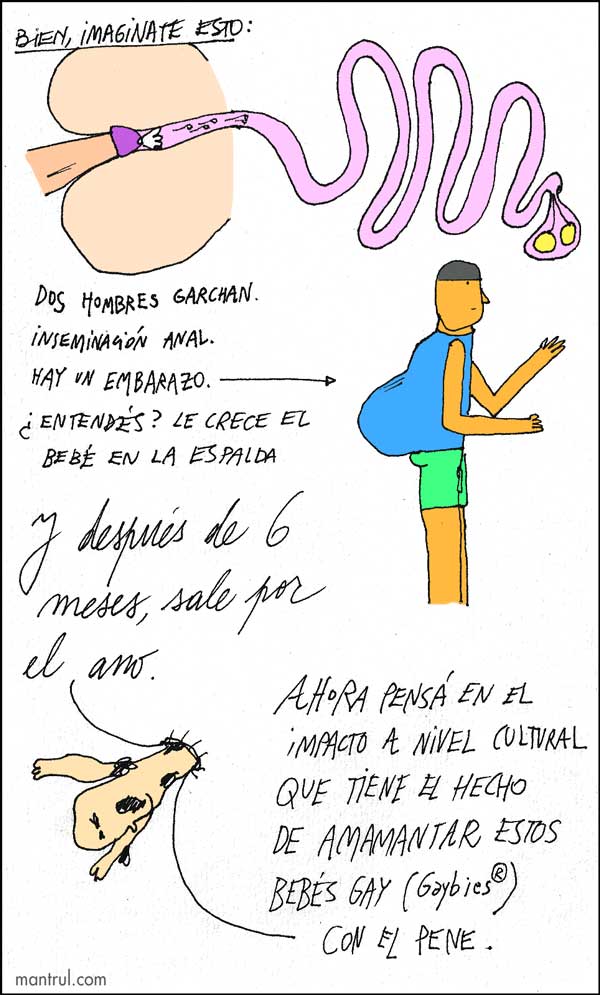 BIEN, IMAGINATE ESTO:
DOS HOMBRES GARCHAN.
INSEMINACIÓN ANAL.
HAY UN EMBARAZO.
¿ENTENDÉS? LE CRECE EL
BEBÉ EN LA ESPALDA
Y después de 6
meses, sale por
el ano.
AHORA PENSÁ EN EL
IMPACTO A NIVEL CULTURAL
QUE TIENE EL HECHO
DE AMAMANTAR ESTOS
BEBÉS GAY (Gaybies®)
CON EL PENE.
mantrul.com